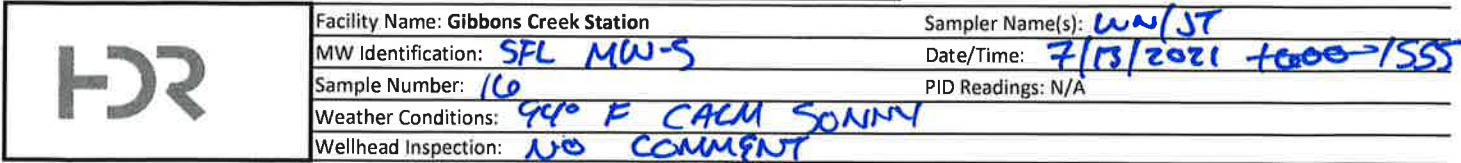 HDR
Facility Name: Gibbons Creek Station Sampler Name(s): WN/JT
MW Identification: SFL MW-5 Date/Time: 7/13/2021 1555
Sample Number: 16 PID Readings: N/A
Weather Conditions: 94° F CALM SONNY
Wellhead Inspection: NO COMMENT